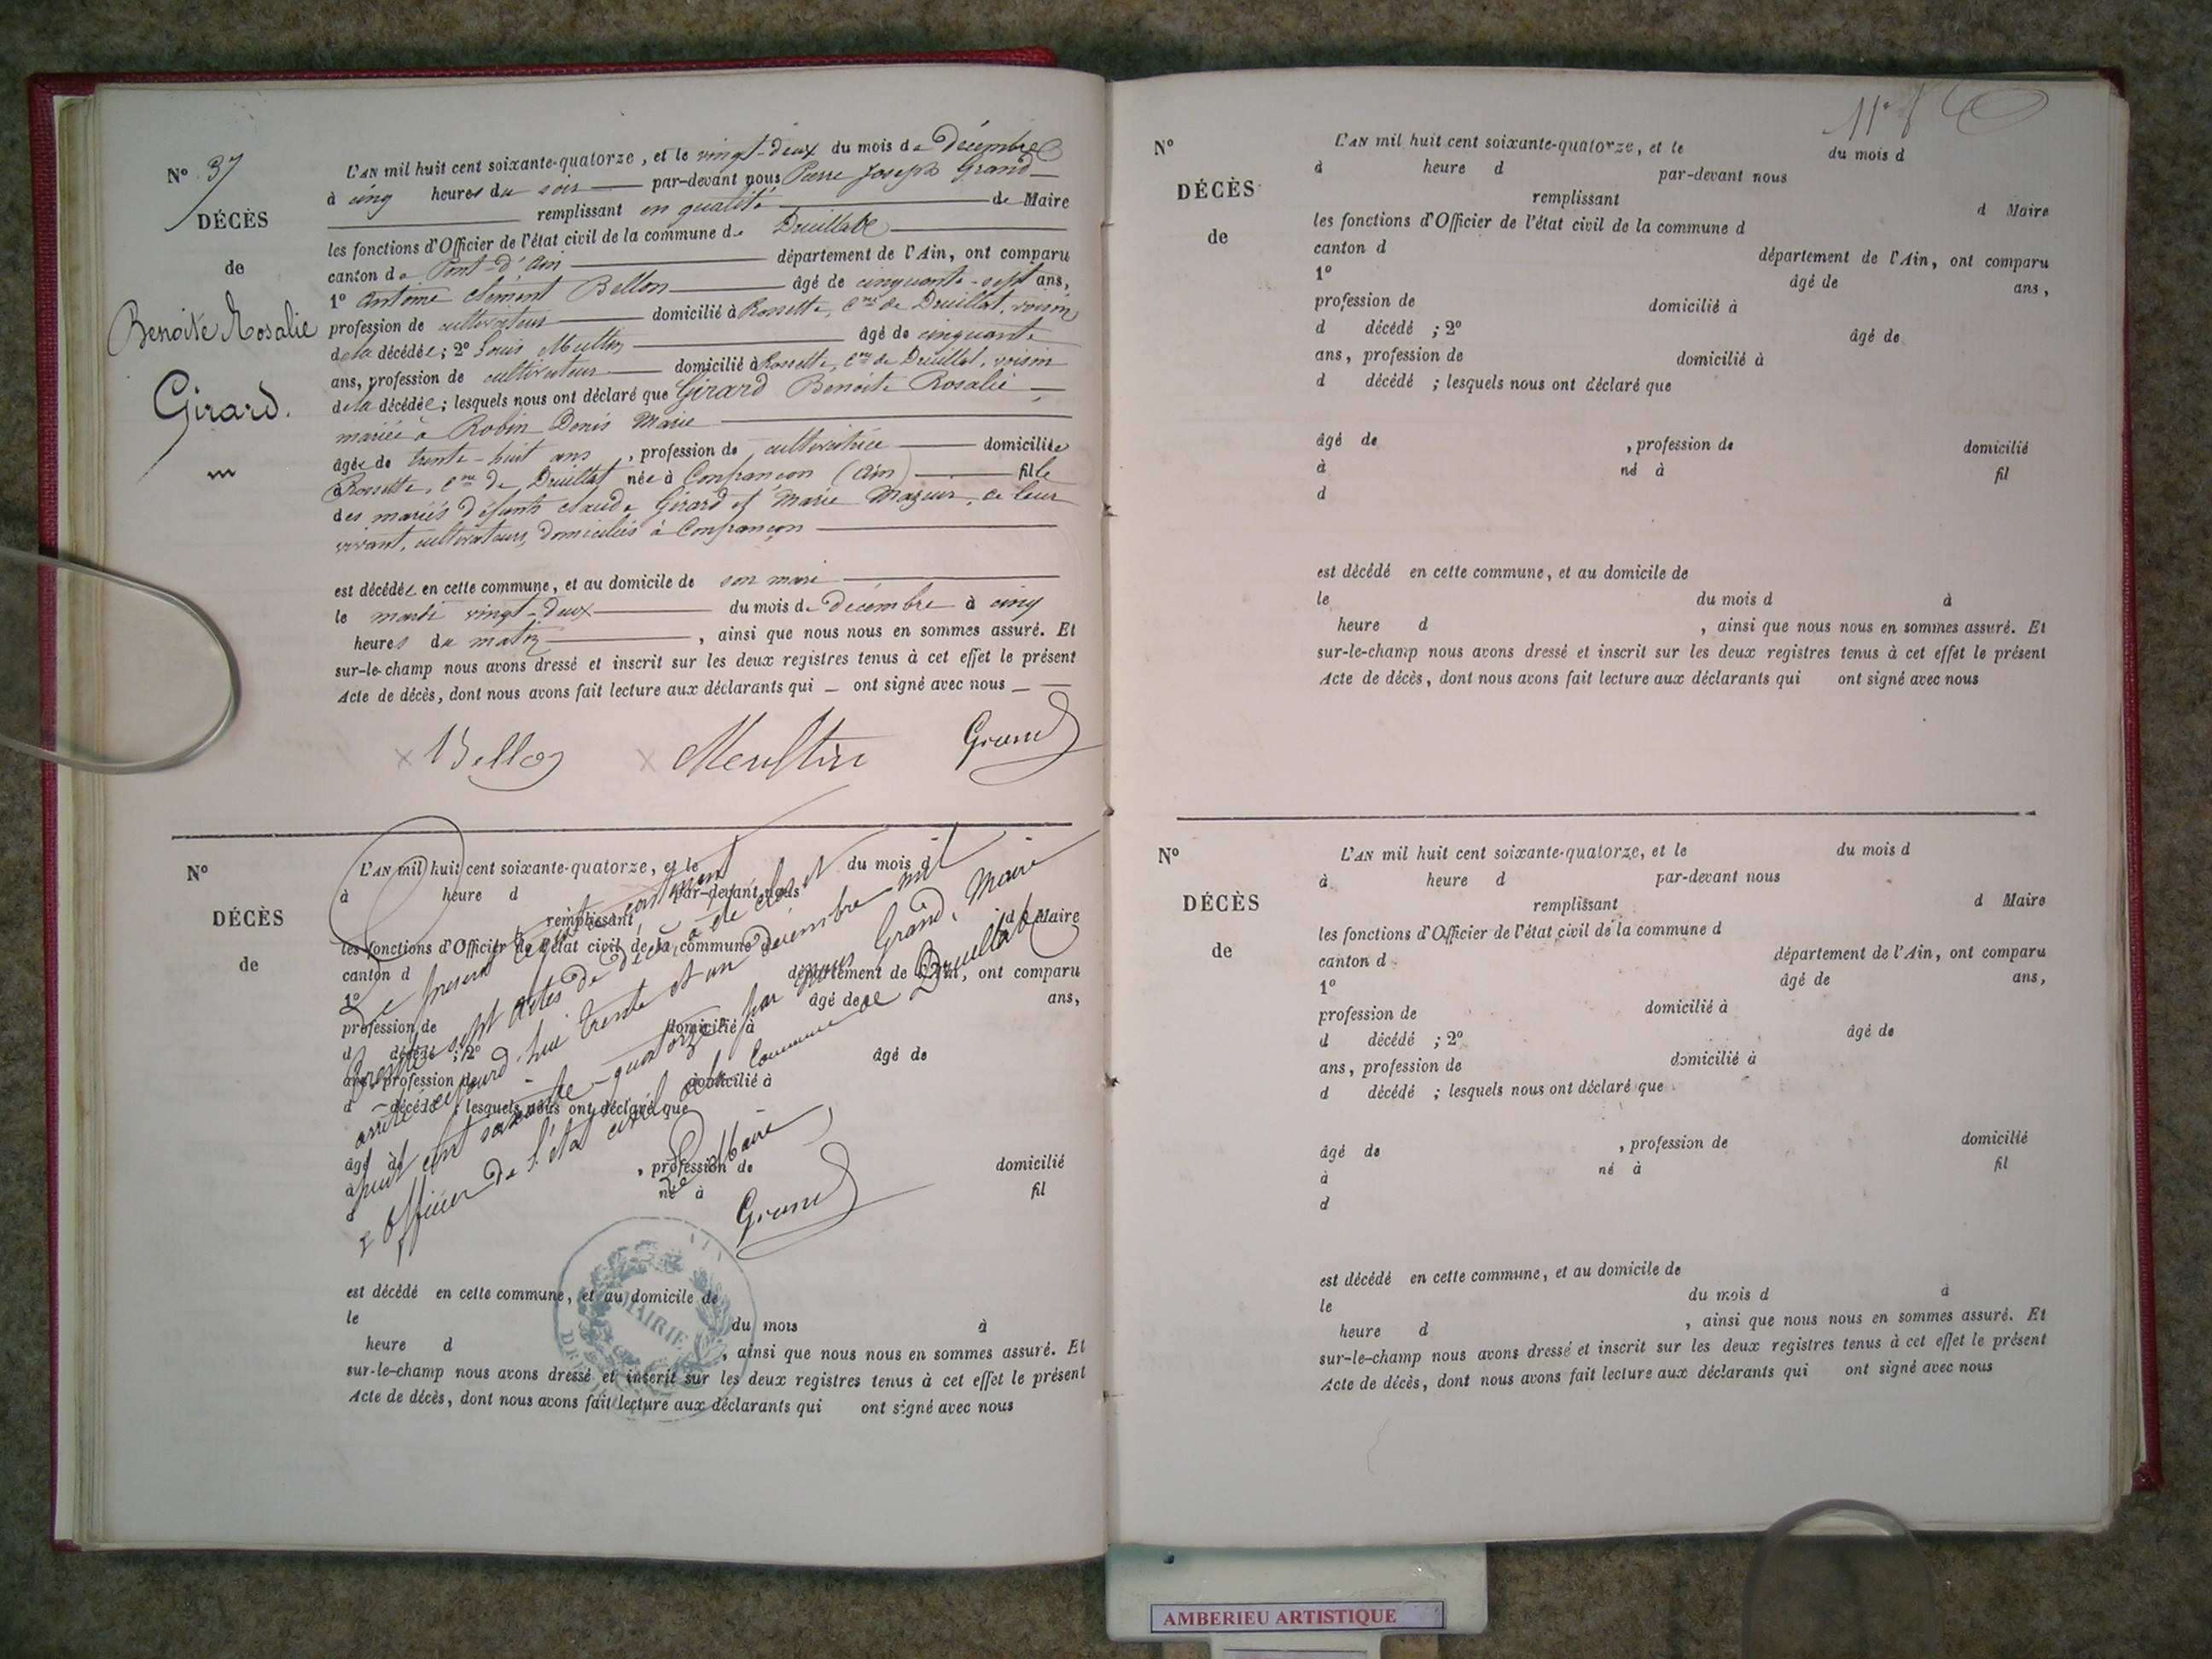 N° 37
DÉCÈS
de
Benoîte Rosalie
Girard.
L'AN mil huit cent soixante-quatorze, et le vingt-deux du mois de Décembre
à cinq heures du soir par-devant nous Pierre Joseph Grand
remplissant en qualité de Maire
les fonctions d'Officier de l'état civil de la commune de Druillat
canton de Pont-d'Ain département de l'Ain, ont comparu
1° Antoine Clément Bellon âgé de cinquante-sept ans,
profession de cultivateur domicilié à Rossette, Cne de Druillat, voisin
de la décédée; 2° Louis âgé de cinquante
ans, profession de cultivateur domicilié à Rossette, Cne de Druillat, voisin
de la décédée; lesquels nous ont déclaré que Girard Benoite Rosalie
mariée à Robin Denis Marie
âgée de trente-huit ans, profession de cultivatrice domiciliée
à Rossette, Cne de Druillat née à Confrançon (Ain) fille
des mariés défunts Claude Girard et Marie Mazuir, de leur
vivant, cultivateurs, domiciliés à Confrançon
est décédée en cette commune, et au domicile de son mari
le mardi vingt-deux du mois de décembre à cinq
heures du matin, ainsi que nous nous en sommes assuré. Et
sur-le-champ nous avons dressé et inscrit sur les deux registres tenus à cet effet le présent
Acte de décès, dont nous avons fait lecture aux déclarants qui ont signé avec nous
Bellon Grand
N°
DÉCÈS
de
L'AN mil huit cent soixante-quatorze, et le du mois d
à heure d par-devant nous
remplissant d Maire
les fonctions d'Officier de l'état civil de la commune d
canton d département de l'Ain, ont comparu
1° âgé de ans,
profession de domicilié à
d décédé ; 2° âgé de
ans, profession de domicilié à
d décédé ; lesquels nous ont déclaré que
âgé de , profession de domicilié
à né à fil
d
Le présent registre contenant
trente-sept actes de décès, a été clos et
arrêté aujourd'hui trente et un décembre mil
huit cent soixante-quatorze par nous Grand, Maire
et Officier de l'état civil de la Commune de Druillat
Le Maire
Grand
MAIRIE
est décédé en cette commune, et au domicile de
le du mois à
heure d , ainsi que nous nous en sommes assuré. Et
sur-le-champ nous avons dressé et inscrit sur les deux registres tenus à cet effet le présent
Acte de décès, dont nous avons fait lecture aux déclarants qui ont signé avec nous
N°
DÉCÈS
de
L'AN mil huit cent soixante-quatorze, et le du mois d
à heure d par-devant nous
remplissant d Maire
les fonctions d'Officier de l'état civil de la commune d
canton d département de l'Ain, ont comparu
1° âgé de ans,
profession de domicilié à
d décédé ; 2° âgé de
ans, profession de domicilié à
d décédé ; lesquels nous ont déclaré que
âgé de , profession de domicilié
à né à fil
d
est décédé en cette commune, et au domicile de
le du mois d à
heure d , ainsi que nous nous en sommes assuré. Et
sur-le-champ nous avons dressé et inscrit sur les deux registres tenus à cet effet le présent
Acte de décès, dont nous avons fait lecture aux déclarants qui ont signé avec nous
N°
DÉCÈS
de
L'AN mil huit cent soixante-quatorze, et le du mois d
à heure d par-devant nous
remplissant d Maire
les fonctions d'Officier de l'état civil de la commune d
canton d département de l'Ain, ont comparu
1° âgé de ans,
profession de domicilié à
d décédé ; 2° âgé de
ans, profession de domicilié à
d décédé ; lesquels nous ont déclaré que
âgé de , profession de domicilié
à né à fil
d
est décédé en cette commune, et au domicile de
le du mois d à
heure d , ainsi que nous nous en sommes assuré. Et
sur-le-champ nous avons dressé et inscrit sur les deux registres tenus à cet effet le présent
Acte de décès, dont nous avons fait lecture aux déclarants qui ont signé avec nous
AMBERIEU ARTISTIQUE